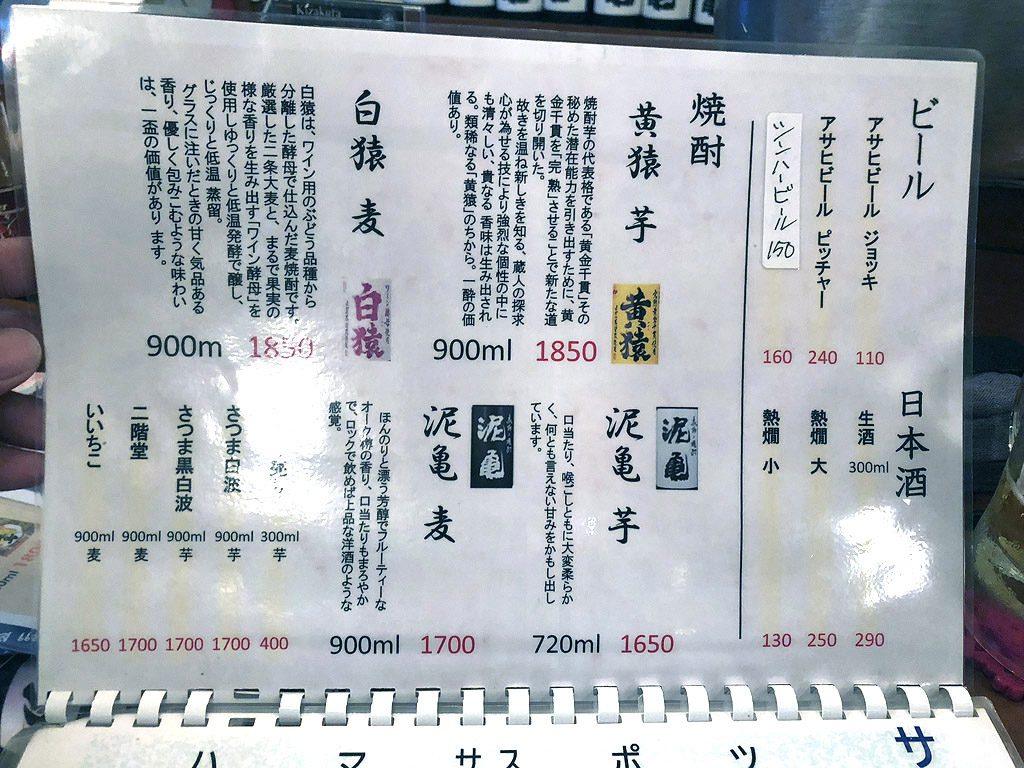 Kizakura
ビール
アサヒビール ジョッキ
110
アサヒビール ピッチャー
240
シンハービール 150
160
日本酒
生酒 300ml
290
熱燗 大
250
熱燗 小
130
焼酎
黄猿 芋
黄猿
焼酎芋の代表格である「黄金千貫」その
秘めた潜在能力を引き出すために、黄
金千貫を「完熟」させることで新たな道
を切り開いた。
故きを温ね新しきを知る、蔵人の探求
心が為せる技により強烈な個性の中に
も清々しい、貴なる 香味は生み出され
る。類稀なる「黄猿」のちから。一酔の価
値あり。
900ml 1850
白猿 麦
白猿
白猿は、ワイン用のぶどう品種から
分離した酵母で仕込んだ麦焼酎です。
厳選した二条大麦と、まるで果実の
様な香りを生み出す「ワイン酵母」を
使用しゆっくりと低温発酵で醸し、
じっくりと低温 蒸留。
グラスに注いだときの甘く気品ある
香り、優しく包みこむような味わい
は、一盃の価値があり ます。
900m 1850
泥亀 芋
泥亀
口当たり、喉ごしともに大変柔らか
く、何とも言えない甘みをかもし出し
ています。
720ml 1650
泥亀 麦
泥亀
ほんのりと漂う芳醇でフルーティーな
オーク樽の香り、口当たりもまろやか
で、ロックで飲めば上品な洋酒のような
感覚。
900ml 1700
300ml 芋
400
さつま白波
900ml 芋
1700
さつま黒白波
900ml 芋
1700
二階堂
900ml 麦
1700
いいちご
900ml 麦
1650
ハ マ サス ポ ツ サ